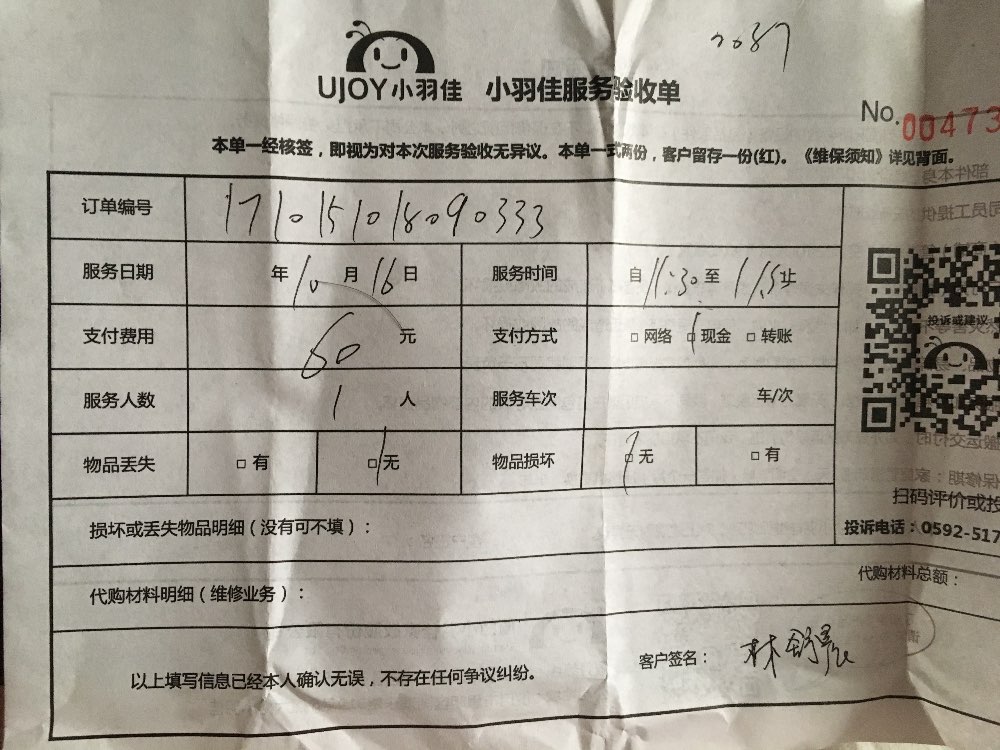 2037
UJOY小羽佳 小羽佳服务验收单
No. 00473
本单一经核签，即视为对本次服务验收无异议。本单一式两份，客户留存一份(红)。《维保须知》详见背面。
订单编号 1710151018090333
服务日期 年 10 月 16 日 服务时间 自 11:30 至 止
支付费用 60 元 支付方式 □ 网络 □ 现金 □ 转账
投诉或建议
服务人数 1 人 服务车次 车/次
物品丢失 □ 有 □ 无 物品损坏 □ 无 □ 有
扫码评价或投
损坏或丢失物品明细（没有可不填）：
投诉电话：0592-517
代购材料明细（维修业务）： 代购材料总额：
以上填写信息已经本人确认无误，不存在任何争议纠纷。 客户签名： 林舒